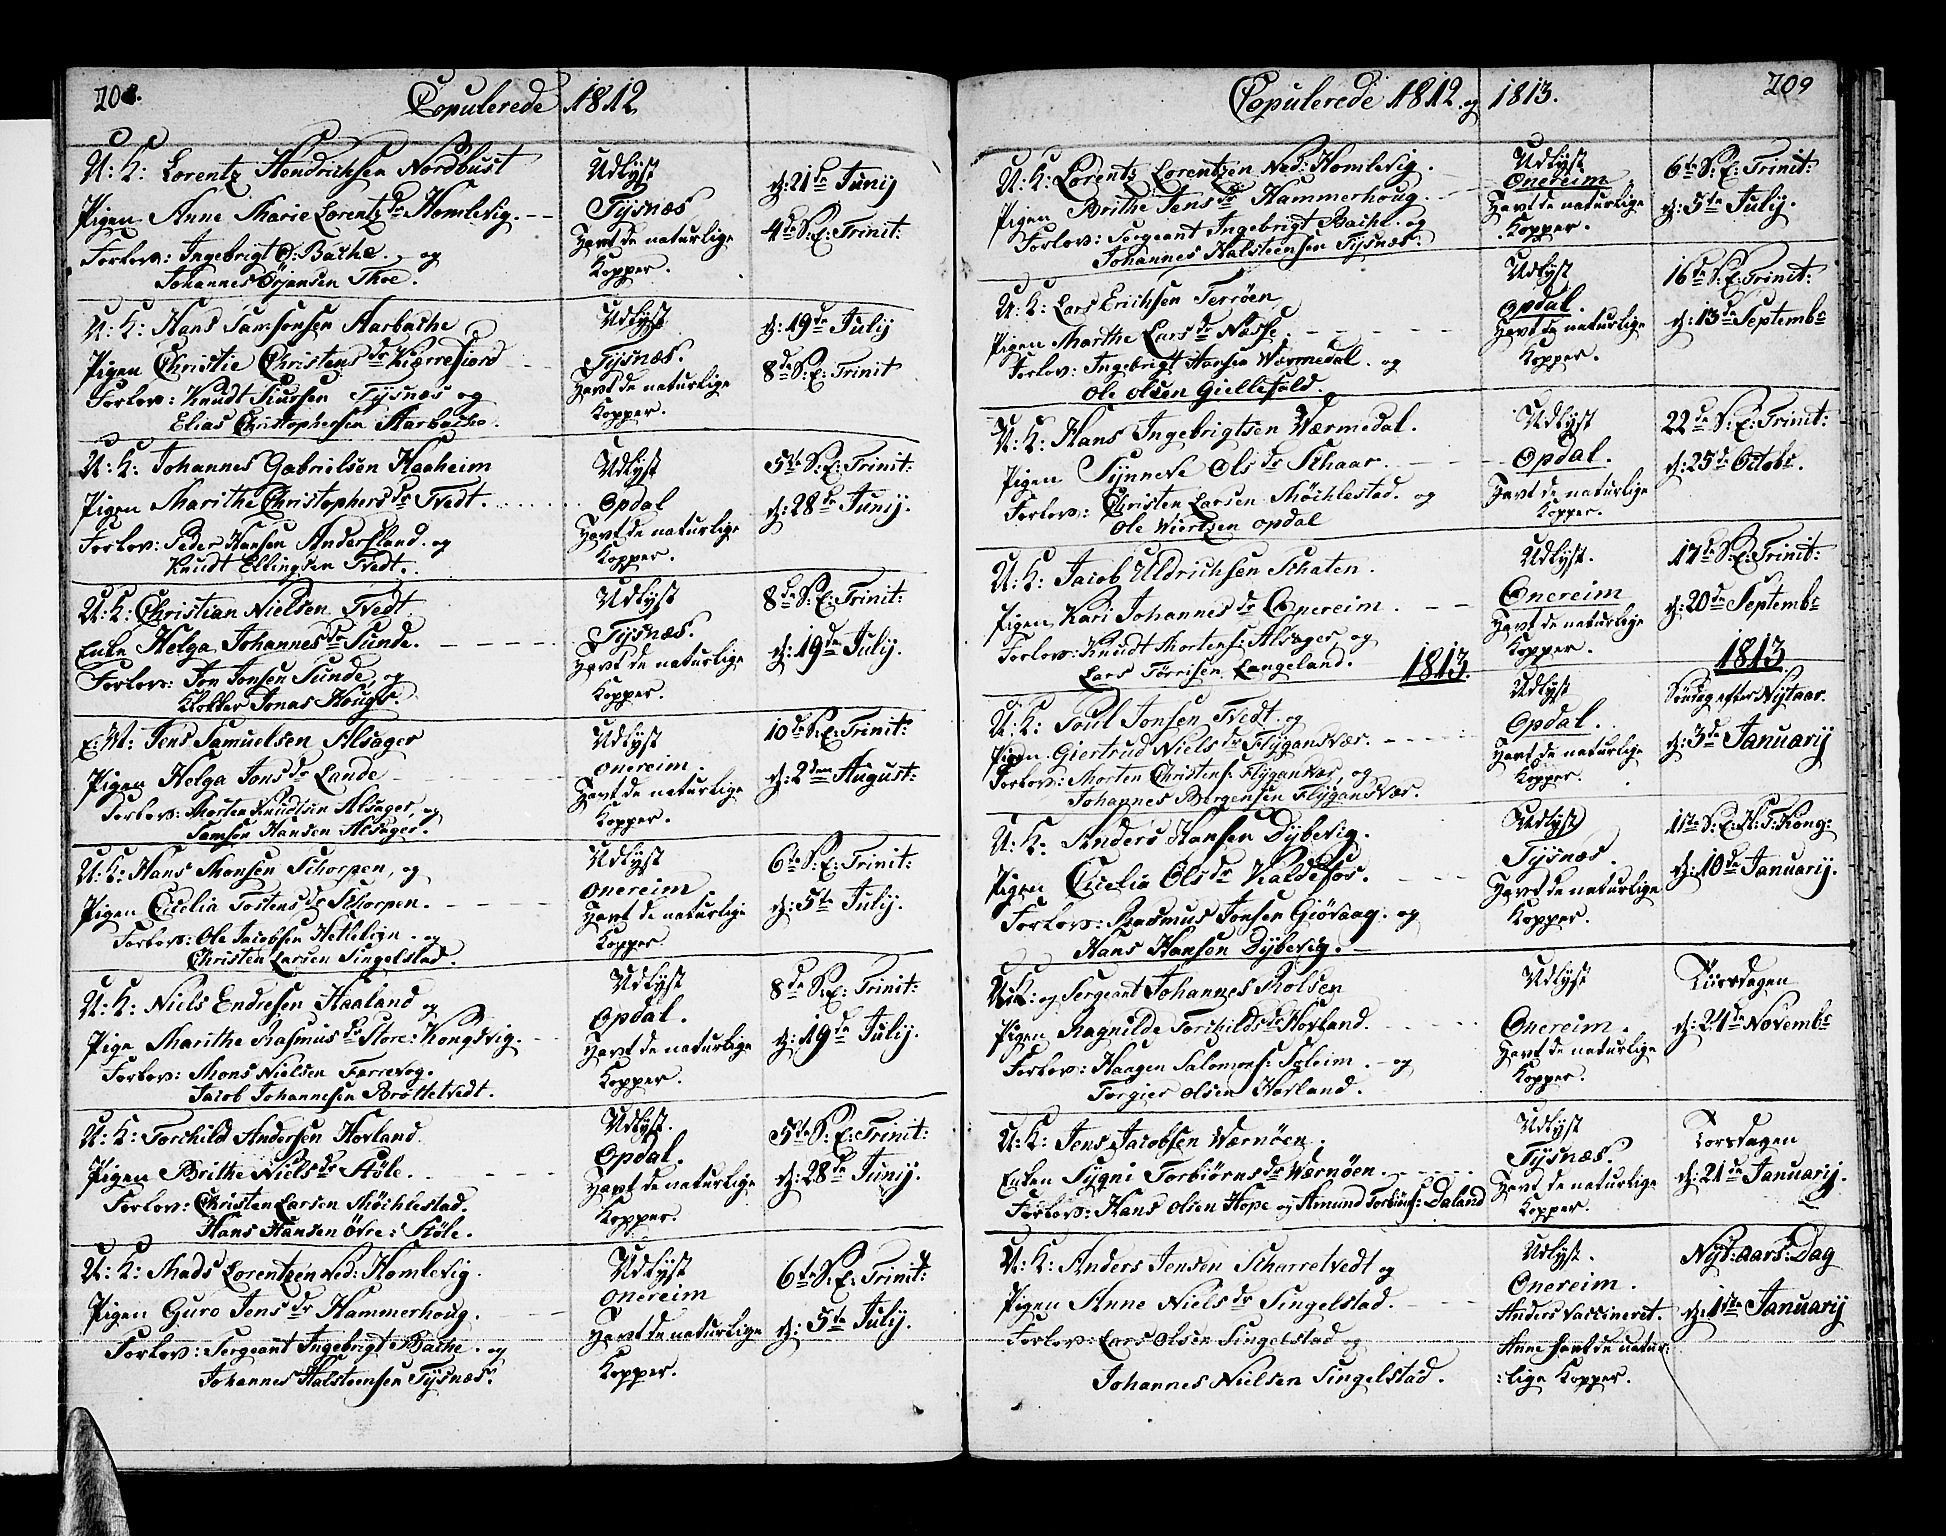 208.
Copulerede 1812
U: K: Lorentz Hendrichsen Nordbust
Pigen Anne Marie Lorentz dr Homlevig.
Forlov: Ingebrigt O: Bache. og
Johannes Örjansen Thoe.
Udlyst
Tÿsnæs
Havt de naturlige
Kopper.
d: 21de Junij
4de S: E: Trinit:
U: K: Hans Samsonsen Aarbache
Pigen Christie Christens dr Kierrefiord
Forlov: Knudt Siursen Tÿsnæs og
Elias Christophersen Aarbache.
Udlyst
Tÿsnæs.
Havt de naturlige
Kopper.
d: 19de Julij
8de S: E: Trinit
U: K: Johannes Gabrielsen Haaheim
Pigen Marithe Christophers dr Tvedt.
Forlov: Peder Hansen Andersland. og
Knudt Ellingsen Tvedt.
Udlyst
Opdal
Havt de naturlige
Kopper.
5te S: E: Trinit:
d: 28de Junij.
U: K: Christian Nielsen Tvedt
Enke Helga Johannes dr Sunde.
Forlov: Jon Jonsen Sunde, og
Klokker Jonas Houge.
Udlyst
Tÿsnæs.
Havt de naturlige
Kopper.
8de S: E: Trinit:
d: 19de Julij.
E: M: Jens Samuelsen Alsager
Pigen Helga Jons dr Lande
Forlov: Morten Knudtsen Alsager, og
Samson Hansen Alsager.
Udlyst
Onereim.
Havt de naturlige
Kopper.
10de S: E: Trinit:
d: 2den August:
U: K: Hans Monsen Schorpen, og
Pigen Cicelia Tostens dr Schorpen.
Forlov: Ole Jacobsen Hetlelien. og
Christen Larsen Singelstad.
Udlyst
Onereim.
Havt de naturlige
Kopper.
6te S: E: Trinit:
d: 5te Julij.
U: K: Niels Endresen Haaland og
Pige Marithe Rasmus dr Store: Kongsvig.
Forlov: Mons Nielsen Færrevog.
Jacob Johannesen Brøttetvedt.
Udlyst
Opdal.
Havt de naturlige
Kopper.
8de S: E: Trinit:
d: 19de Julij.
U: K: Torchild Andersen Hovland
Pigen Brithe Niels dr Støle.
Forlov: Christen Larsen Møchlestad.
Hans Hansen Övre: Støle.
Udlyst.
Opdal.
Havt de naturlige
Kopper.
5te S: E: Trinit:
d: 28de Junij.
U: K: Mads Lorentzen Ned: Homlevig.
Pigen Guro Jens dr Hammerhoug.
Forlov: Sergeant Ingebrigt Bache. og
Johannes Halsteensen Tÿsnæs.
Udlyst
Onereim
Havt de naturlige
Kopper.
6te S: E: Trinit:
d: 5te Julij.
Copulerede 1812. og 1813.
209
U: K: Lorentz Lorentzen Ned: Homlevig.
Pigen Brithe Jens dr Hammerhoug.
Forlov: Sergeant Ingebrigt Bache. og
Johannes Halsteensen Tÿsnæs.
Udlyst
Onereim
Havt de naturlige
Kopper.
6te S: E: Trinit:
d: 5te Julij.
U: K: Lars Erichsen Terröen
Pigen Marthe Lars dr Næsse.
Forlov: Ingebrigt Hansen Wærmedal. og
Ole Olsen Giellefald.
Udlyst
Opdal.
Havt de naturlige
Kopper.
16de S: E: Trinit:
d: 13de Septembr
U: K: Hans Ingebrigtsen Wærmedal.
Pigen Synneve Ols dr Schaar.
Forlov: Christen Larsen Møchlestad. og
Ole Wiertzen Opdal
Udlyst
Opdal.
Havt de naturlige
Kopper.
22de S: E: Trinit:
d: 25de Octobr.
U: K: Jacob Uldrichsen Schaten.
Pigen Kari Johannes dr Onereim.
Forlov: Knudt Mortens: Alsager og
Lars Tørrisen Langeland.
Udlyst.
Onereim
Havt de naturlige
Kopper.
17de S: E: Trinit:
d: 20de Septembr
1813.
1813
U: K: Poul Jonsen Tvedt. og
Pigen Giertrud Niels dr Flÿgansvær.
Forlov: Morten Christens: Flÿgansvær, og
Johannes Børgensen Flÿgansvær.
Udlyst
Opdal.
Havt de naturlige
Kopper.
Søndag efter Nytaar.
d: 3de Januarij
U: K: Anders Hansen Dÿbevig.
Pigen Cicelia Ols dr Kaldefos.
Forlov: Rasmus Jonsen Giøvaag. og
Hans Hansen Dÿbevig.
Udlyst
Tÿsnæs.
Havt de naturlige
Kopper.
1ste S: E: H: 3: Kong:
d: 10de Januarij.
U: K: og Sergeant Johannes Rolsen
Pigen Magnilde Torchilds dr Hovland.
Forlov: Haagen Salomons: Soleim. og
Torgier Olsen Hovland.
Udlyst
Onereim.
Havt de naturlige
Kopper.
Tiirsdagen
d: 24de Novembr
U: K: Jens Jacobsen Wernøen.
Enken Sygni Torbiørns dr Wernøen.
Forlov: Hans Olsen Hope og Amund Torbiörns: Daland
Udlyst
Tÿsnæs.
Havt de naturlige
Kopper.
Torsdagen
d: 21de Januarij.
U: K: Anders Jensen Scharretvedt og
Pigen Anne Niels dr Singelstad.
Forlov: Lars Olsen Singelstad og
Johannes Nielsen Singelstad.
Udlyst.
Onereim.
Anders Vaccineret.
Anne havt de natur:
:lige Kopper.
Nyt: aars: Dag
d: 1ste Januarij